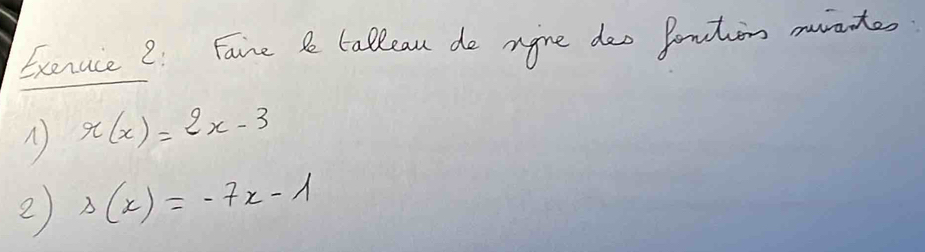 Exercice 2: Faire le tableau de signe des fonctions suivantes:
1) r(x) = 2x - 3
2) s(x) = -7x - 1